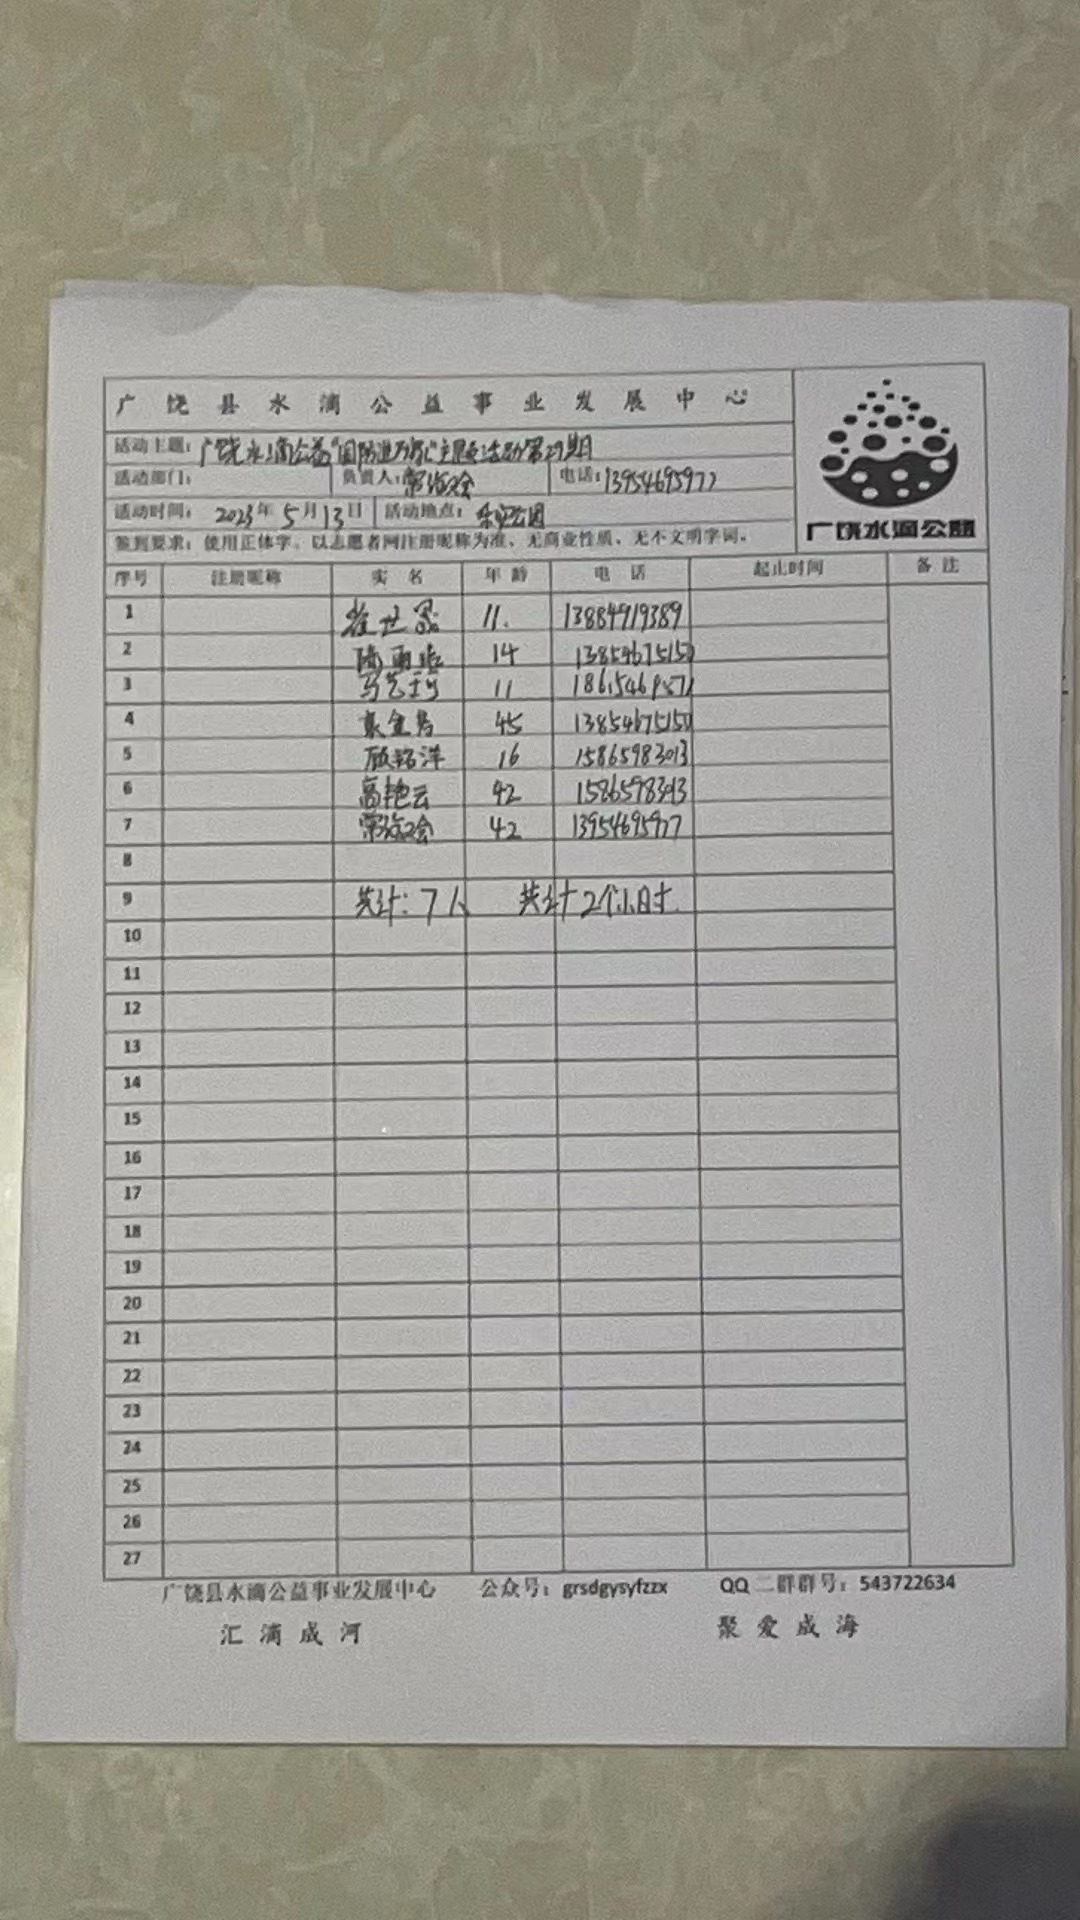 广饶县水滴公益事业发展中心
活动主题：广饶水滴公益"国防进万家"主题活动第29期
活动部门： 负责人： 电话：13954695977
活动时间：2023年5月13日 活动地点：乐安公园
签到要求：使用正体字，以志愿者网注册昵称为准，无商业性质，无不文明字词。
广饶水滴公益
序号 注册昵称 实名 年龄 电话 起止时间 备注
1 崔世 11. 13884919389
2 14 13854675150
3 马艺 11
4 袁金 45 13854675150
5 顾铭洋 16 15865983013
6 高艳云 42 15865983013
7 42 13954695977
8
9 共计：7人 共计2个小时.
10
11
12
13
14
15
16
17
18
19
20
21
22
23
24
25
26
27
广饶县水滴公益事业发展中心 公众号：grsdgysyfzzx QQ二群群号：543722634
汇滴成河 聚爱成海